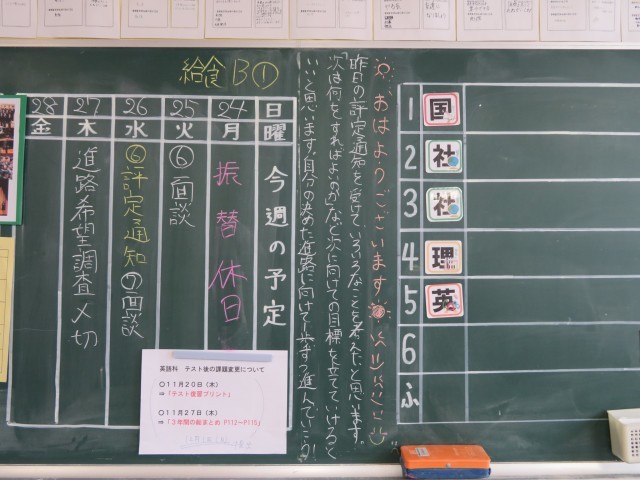 給食B①
1 国
2 社
3 社
4 理
5 英
6
ふ
おはようございます
昨日の評定通知を受けて、いろいろなことを考えたと思います。
「次は何をすればよいのか」など次に向けての目標を立てていけると
いいと思います。自分の決めた進路に向けて一歩ずつ進んでいこう!
今週の予定
日 曜
24 月 振替休日
25 火 ⑥面談
26 水 ⑥評定通知⑦面談
27 木 進路希望調査〆切
28 金
英語科 テスト後の課題変更について
〇11月20日(木)
⇒「テスト復習プリント」
〇11月27日(木)
⇒「3年間の総まとめ P112～P115」